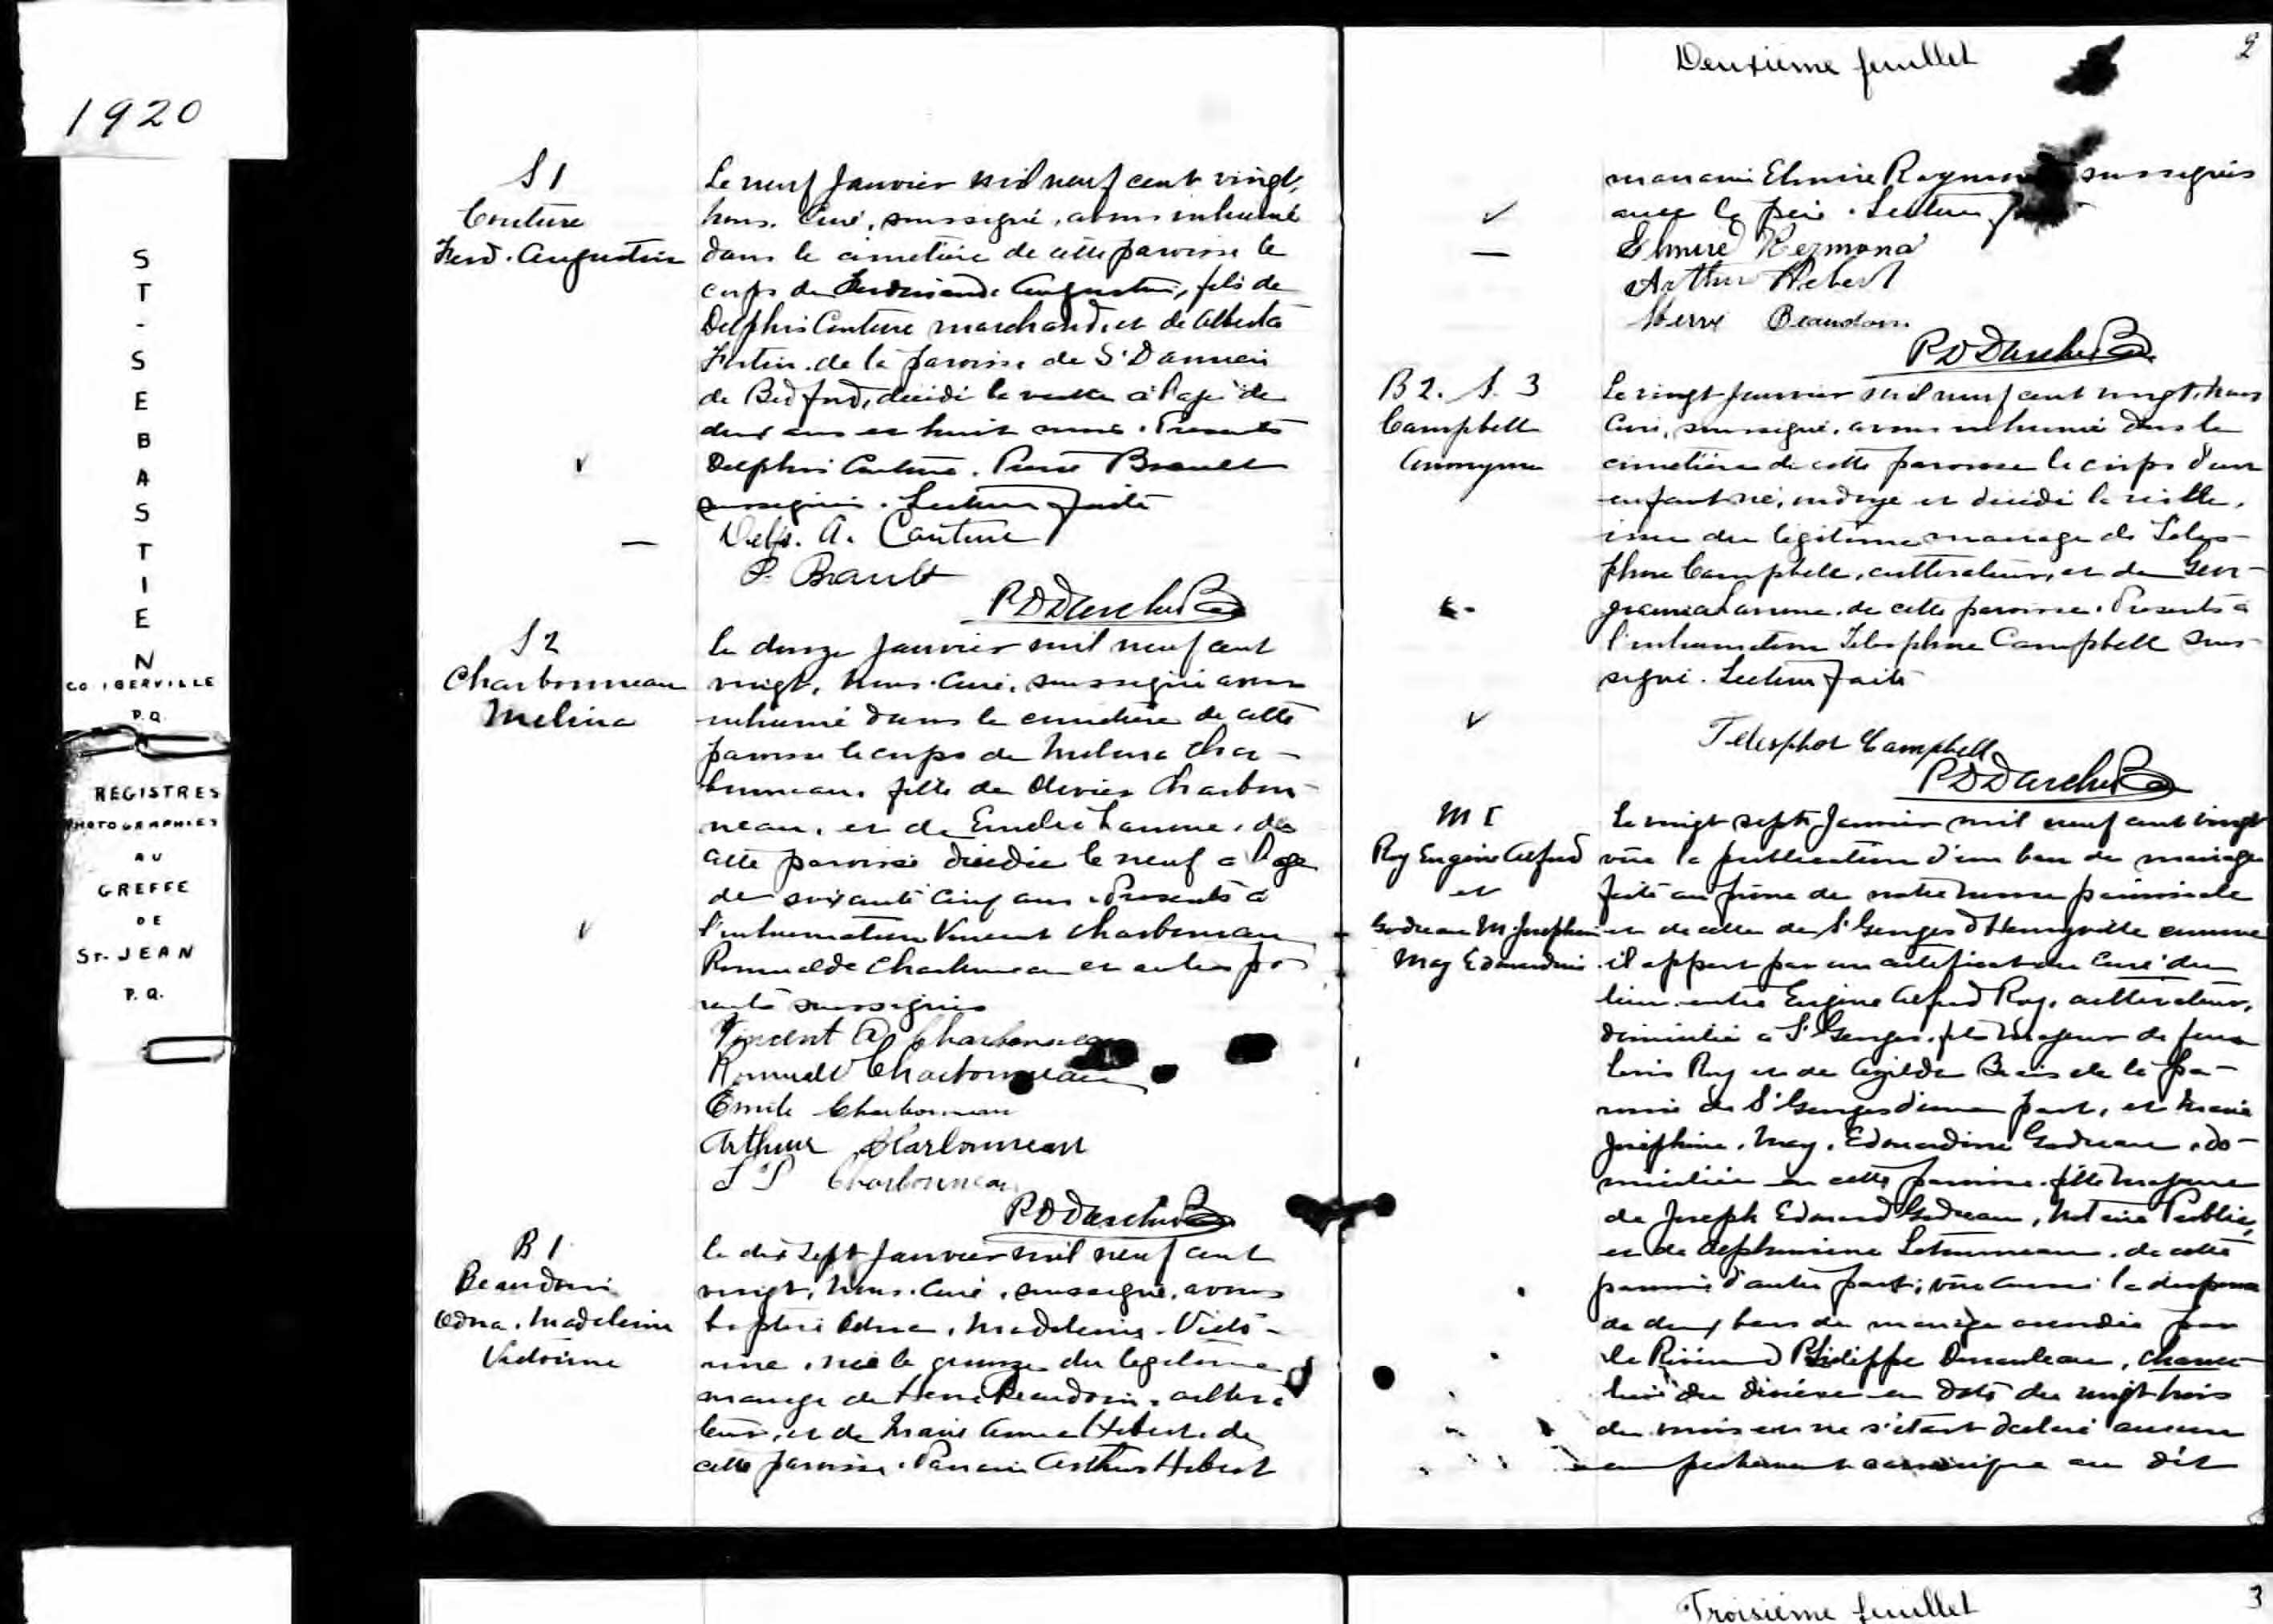 1920
ST-SEBASTIEN
CO. IBERVILLE
P.Q.
REGISTRES
PHOTOGRAPHIES
AU
GREFFE
DE
ST. JEAN
P.Q.
S 1
Couture
Ferd. Augustin
Le neuf Janvier mil neuf cent vingt,
nous, Curé, soussigné, avons inhumé
dans le cimetière de cette paroisse le
corps de Ferdinand Augustin, fils de
Delphis Couture marchand, et de Alberta
Fortin de la paroisse de St Damien
de Bedford, décédé la veille à l'age de
deux ans et huit mois. Presents
Delphis Couture, Pierre Brault
soussignés. Lecture faite
Delp. A. Couture
P. Brault
P D Darche
S 2
Charbonneau
Melina
Le douze Janvier mil neuf cent
vingt, nous, Curé, soussigné avons
inhumé dans le cimetière de cette
paroisse le corps de Melina Char-
bonneau, fille de Olivier Charbon-
neau, et de Lamme, de
cette paroisse décédée le neuf a l'age
de soixante cinq ans. Presents à
l'inhumation Vincent Charbonneau
Romuald Charbonneau et autres pa-
rents soussignés
Vincent Charbonneau
Romuald Charbonneau
Emile Charbonneau
Arthur Charbonneau
Charbonneau
P D Darche
B 1
Beaudoin
Edna, Madeleine
Victorine
Le dix sept Janvier mil neuf cent
vingt, nous, Curé, soussigné, avons
baptisé Edna, Madeleine, Victo-
rine, née le quinze du legitime
mariage de Henri Beaudoin, cultiva
teur, et de Marie Anna Hebert de
cette paroisse. Parrain Arthur Hebert
Deuxième feuillet
2
marraine Elmire Raymond soussignés
avec le père. Lecture
Elmire Rezmond
Arthur Hebert
Henri Beaudoin
P D Darche
B 2. S. 3
Campbell
Anonyme
Le vingt Janvier mil neuf cent vingt, nous
Curé, soussigné, avons inhumé dans le
cimetière de cette paroisse le corps d'un
enfant né, ondoyé et décédé la veille,
issu du legitime mariage de Teles-
phore Campbell, cultivateur, et de Geor-
giana Lamme, de cette paroisse. Presents à
l'inhumation Telesphore Campbell sous-
signé. Lecture faite
Telesphor Campbell
P D Darche
M 1
Roy Eugène Alfred
et
Godreau M. Josephine
May Edouardine
Le vingt sept Janvier mil neuf cent vingt
vûe la publication d'un ban de mariage
faite au prône de notre messe paroissiale
et de celle de St Georges d'Henryville comme
il appert par un certificat du Curé du
lieu entre Eugène Alfred Roy, cultivateur,
domicilié à St Georges, fils majeur de feu
Louis Roy et de Azilda Brais de la pa-
roisse de St Georges d'une part, et Marie
Joséphine, May, Edouardine Godreau, do-
miciliée en cette paroisse, fille majeure
de Joseph Edouard Godreau, Notaire Public,
et de Létourneau, de cette
paroisse d'autre part; vûe aussi la dispense
de deux bans de mariage accordée par
le Révérend Philippe, chance-
lier du diocèse en date du vingt trois
du mois et ne s'étant declaré aucun
empechement canonique au dit
Troisième feuillet
3